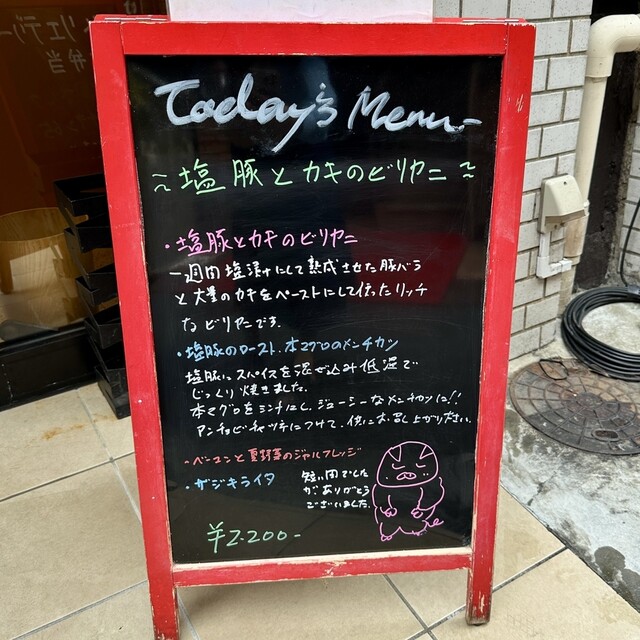 Today's Menu-
~塩豚とカキのビリヤニ~
・塩豚とカキのビリヤニ
一週間塩漬けにして熟成させた豚バラ
と大量のカキをペーストにして使ったリッチ
なビリヤニです。
・塩豚のロースト、本マグロのメンチカツ
塩豚にスパイスを混ぜ込み低温で
じっくり焼きました。
本マグロをミンチにし、ジューシーなメンチカツに!!
アンチョビチャツネにつけて、供にお召し上がりください。
-ベーコンと夏野菜のジャルフレッジ
・ザジキライタ
短い間でした
が、ありがとう
ございました。
¥2.200-